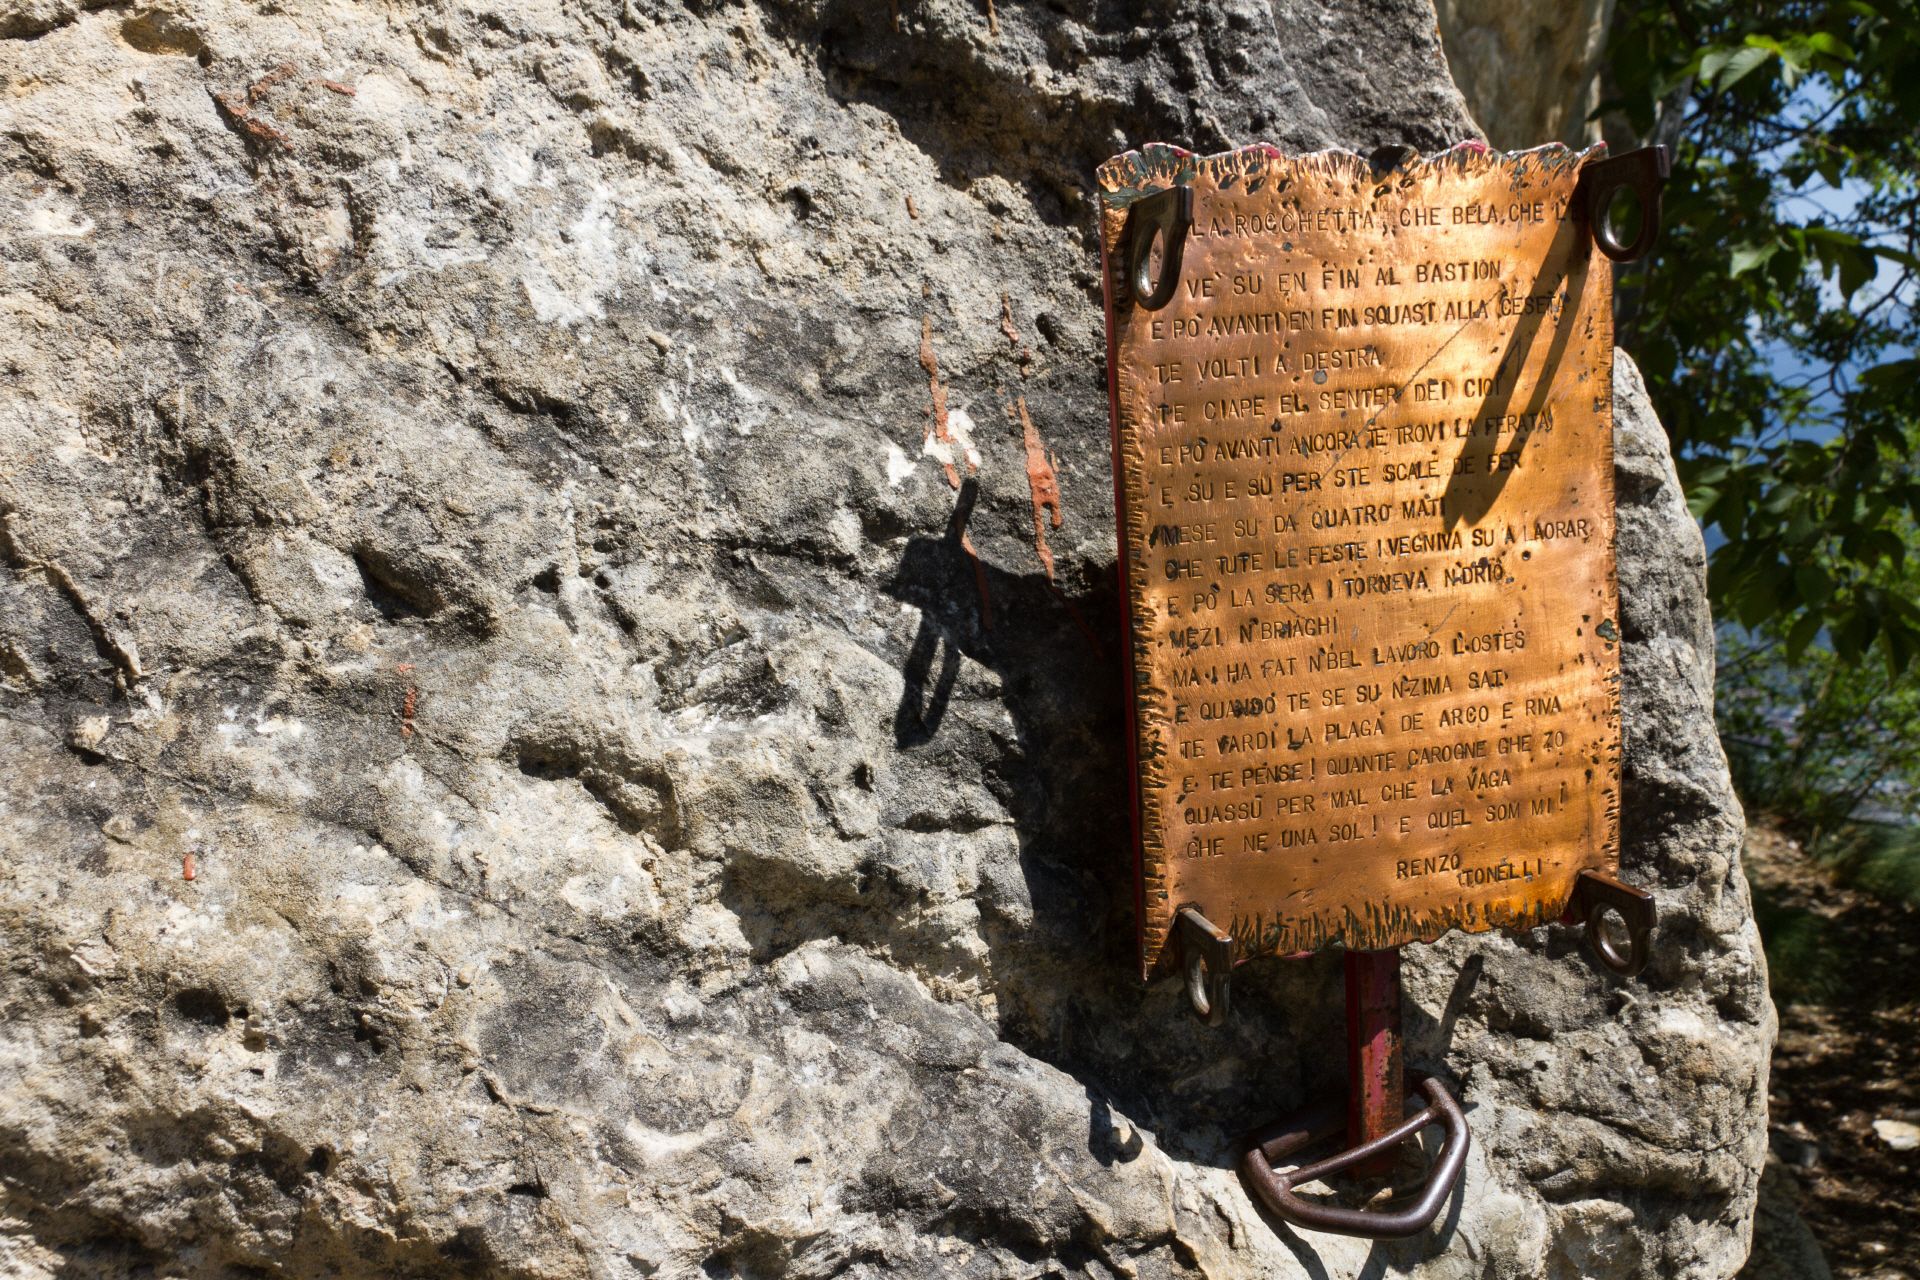 LA ROCCHETTA, CHE BELA, CHE L'È
VE' SU EN FIN AL BASTION
E PO' AVANTI EN FIN SQUASI ALLA CESETA
TE VOLTI A DESTRA
TE CIAPE EL SENTER DEI CIOI
E PO' AVANTI ANCORA TE TROVI LA FERATA
E SU E SU PER STE SCALE DE FER
MESE SU DA QUATRO MATI
CHE TUTE LE FESTE I VEGNIVA SU A LAORAR
E PO' LA SERA I TORNEVA N'DRIO
MEZI N'BRIAGHI
MA I HA FAT N'BEL LAVORO L'OSTES
E QUANDO TE SE SU N'ZIMA SAT
TE VARDI LA PLAGA DE ARCO E RIVA
E TE PENSE! QUANTE CAROGNE GHE ZO
QUASSÙ PER MAL CHE LA VAGA
GHE NE UNA SOL! E QUEL SOM MI!
RENZO TONELLI